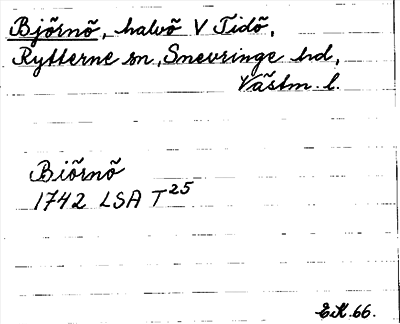 Björnö, halvö V Tidö,
Rytterne sn, Snevringe hd,
Västm. l.
Biörnö
1742 LSA T 25
EK. 66.